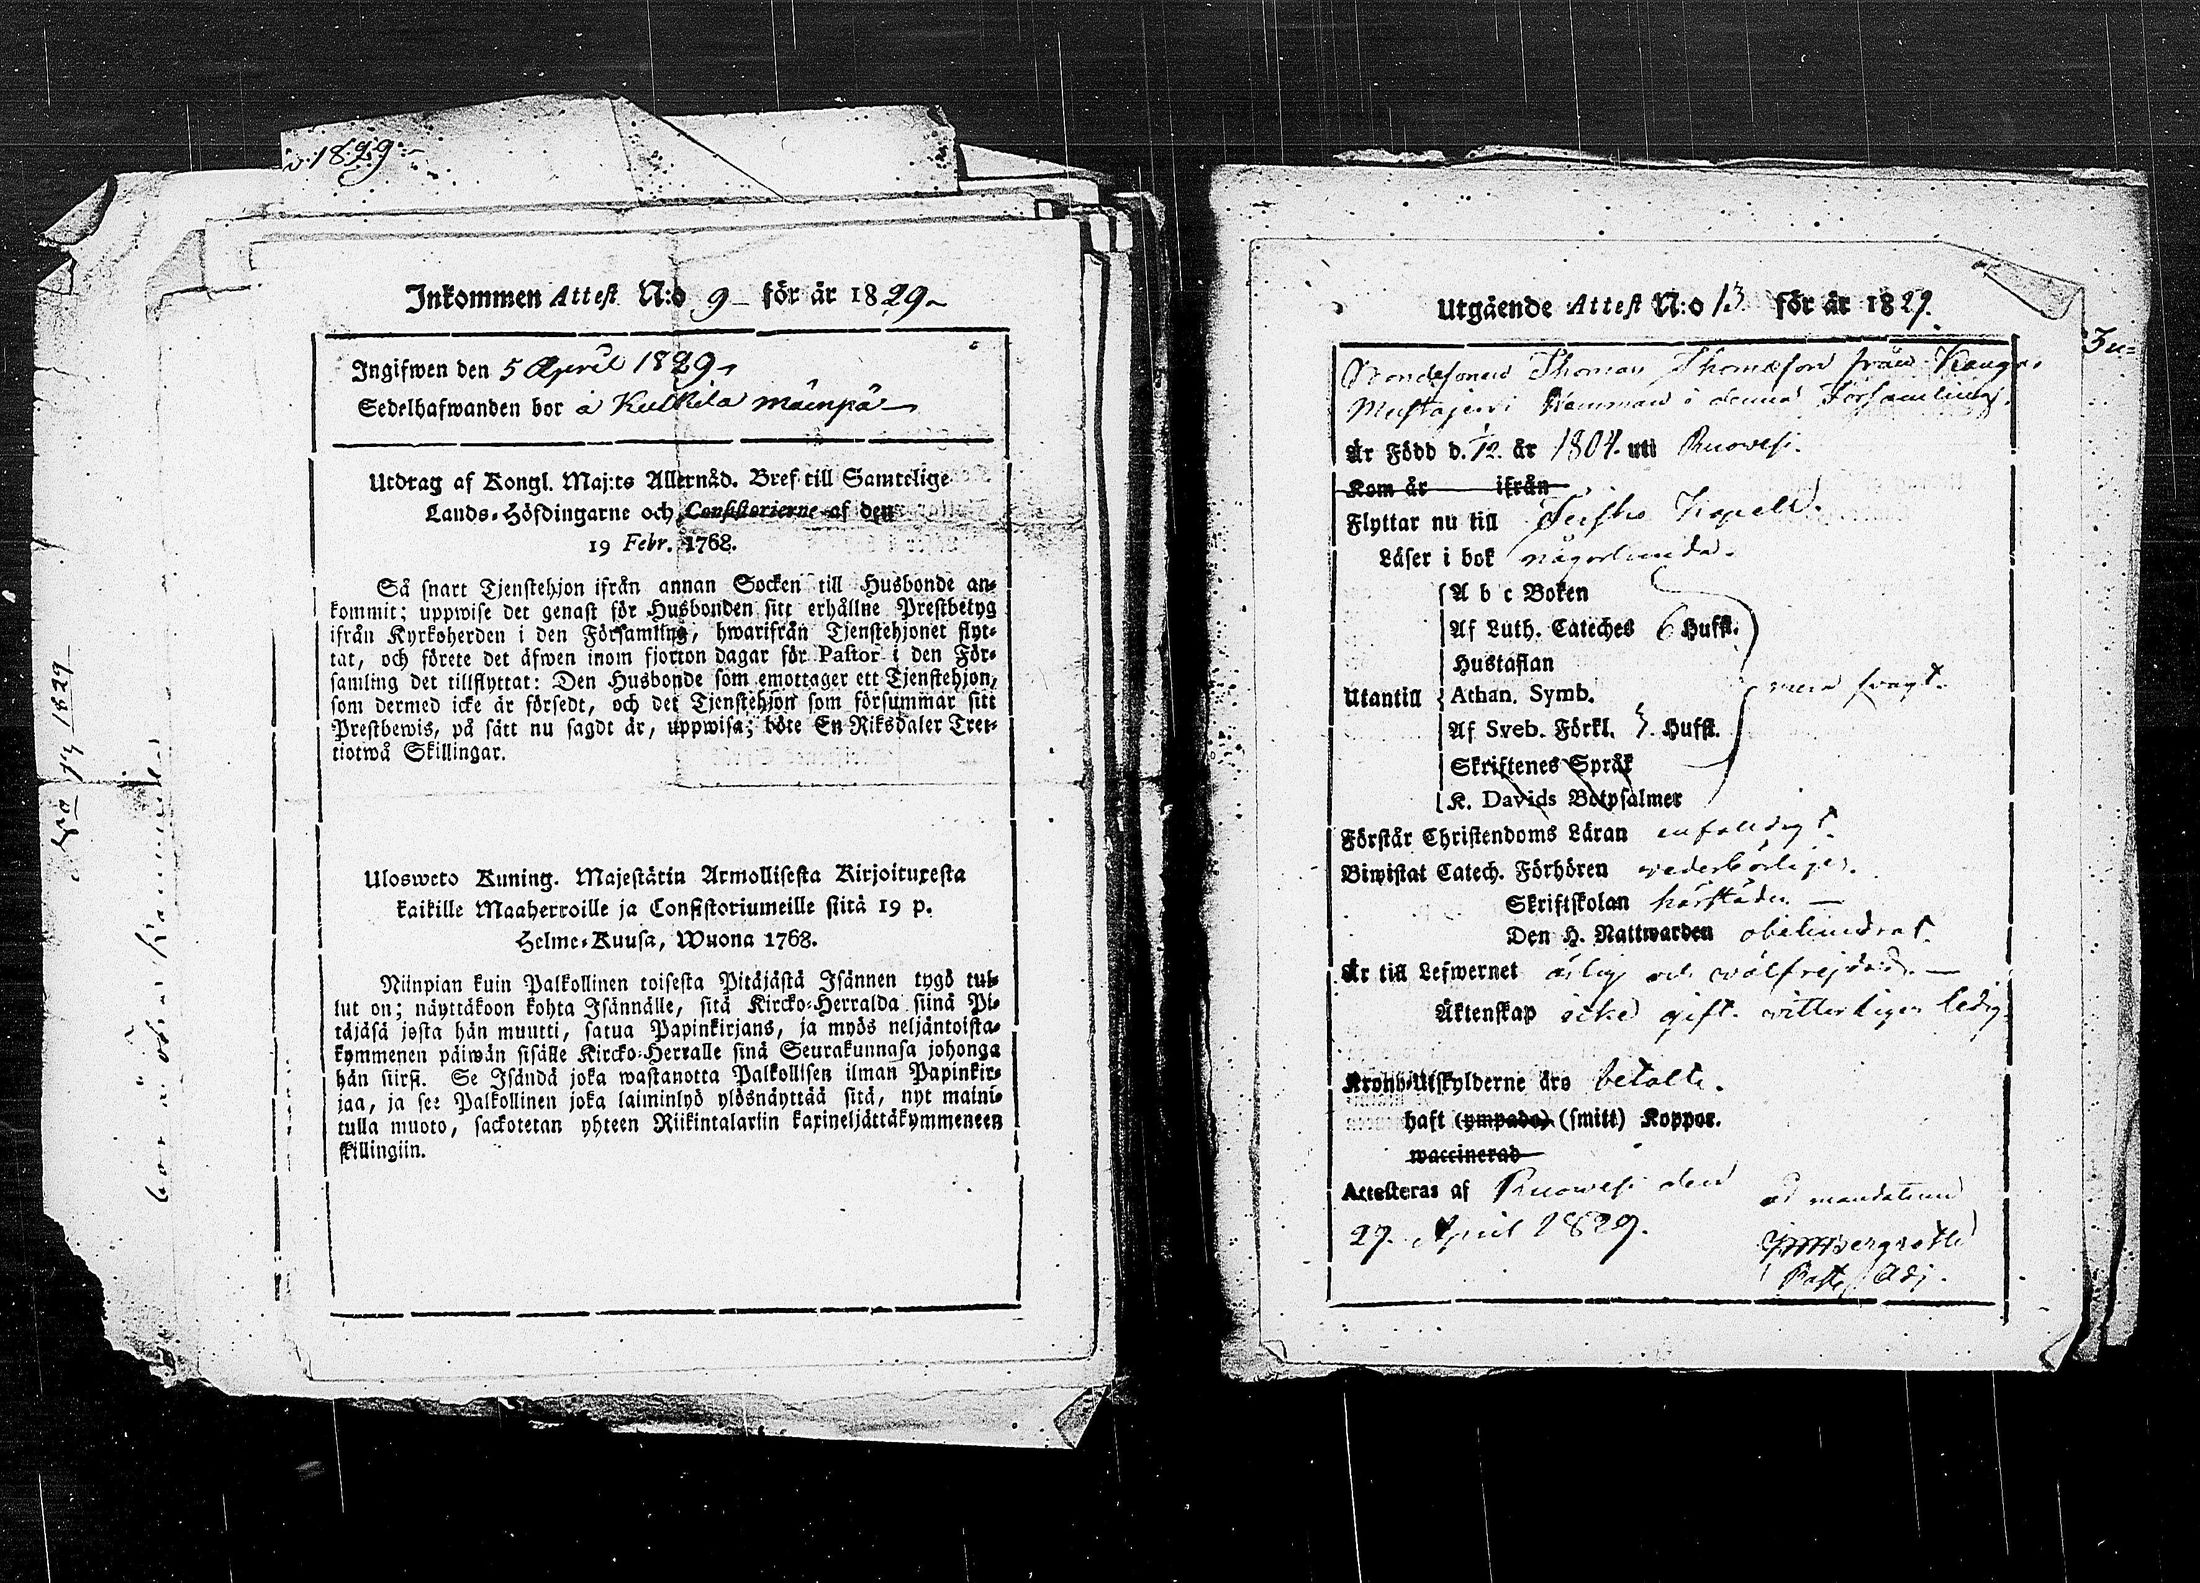 v. 1829.
Inkommen Attest N:o 9 för år 1829
Ingifwen den 5 April 1829
Sedelhafwanden bor å Kulkila mäenpä
Utdrag af Kongl. Maj:ts Allernåd. Bref till Samtelige
Lands-Höfdingarne och Consistorierne af den
19 Febr. 1768.
Så snart Tjenstehjon ifrån annan Socken till Husbonde an-
kommit; uppwise det genast för Husbonden sitt erhållne Prestbetyg
ifrån Kyrkoherden i den Församling, hwarifrån Tjenstehjonet flyt-
tat, och förete det äfwen inom fjorton dagar för Pastor i den För-
samling det tillflyttat: Den Husbonde som emottager ett Tjenstehjon,
som dermed icke är försedt, och det Tjenstehjon som försummar sitt
Prestbewis, på sätt nu sagdt är, uppwisa; böte En Riksdaler Tret-
tiotwå Skillingar.
Ulosweto Kuning. Majestätin Armollisesta Kirjoituxesta
kaikille Maaherroille ja Consistoriumeille siitä 19 p.
Helme-Kuusa, Wuona 1768.
Niinpian kuin Palkollinen toisesta Pitäjästä Isännen tygö tul-
lut on; näyttäköon kohta Isännälle, sitä Kircko-Herralda siinä Pi-
täjäsä josta hän muutti, satua Papinkirjans, ja myös neljäntoista-
kymmenen päiwän sisälle Kircko-Herralle sinä Seurakunnasa johonga
hän siirsi. Se Isändä joka wastanotta Palkollisen ilman Papinkir-
jaa, ja se: Palkollinen joka laiminlyö ylösnäyttää sitä, nyt maini-
tulla muoto, sackotetan yhteen Riikintalariin kaxineljättäkymmeneen
skillingiin.
1829
Utgående Attest N:o 13 för år 1829.
Bondesonen Thomas Thomasson från Kangas
Mustajerwi Hemman i denna Församling.
Är Född d. 12. år 1804. uti Ruowesi.
Kom år ifrån
Flyttar nu till Teisko Kapell.
Läser i bok någorlunda.
A b c Boken
Af Luth. Cateches 6 Hufst.
Hustaflan
Utantill Athan. Symb. mera swagt.
Af Sveb. Förkl. 3. Hufst.
Skriftenes Språk
K. Davids Botpsalmer
Förstår Christendoms Läran enfaldigt.
Biwistat Catech. Förhören wederbörligen.
Skriftskolan härstädes
Den H. Nattwarden obehindrat.
Är till Lefwernet ärlig och wälfrejdad.
Äktenskap icke gift. witterligen ledig.
Krono-Utskylderne äro betalte.
haft (ympade) (smitt) Koppor.
waccinerad
Attesteras af Ruowesi den
27. April 1829.
ad mandatum
Bergroth
Past. Adj.